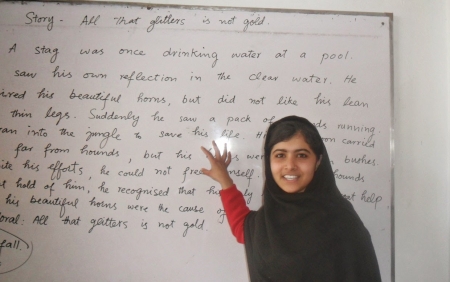 Story - All that glitters is not gold.
A stag was once drinking water at a pool.
saw his own reflection in the clear water. He
ired his beautiful horns, but did not like his lean
thin legs. Suddenly he saw a pack of nds running
ran into the jungle to save his life. H on carried
far from hounds, but his were bushes
ite his efforts, he could not free mself. ounds
hold of him, he recognised that his ly help
his beautiful horns were the cause of
oral: All that glitters is not gold.
fall.